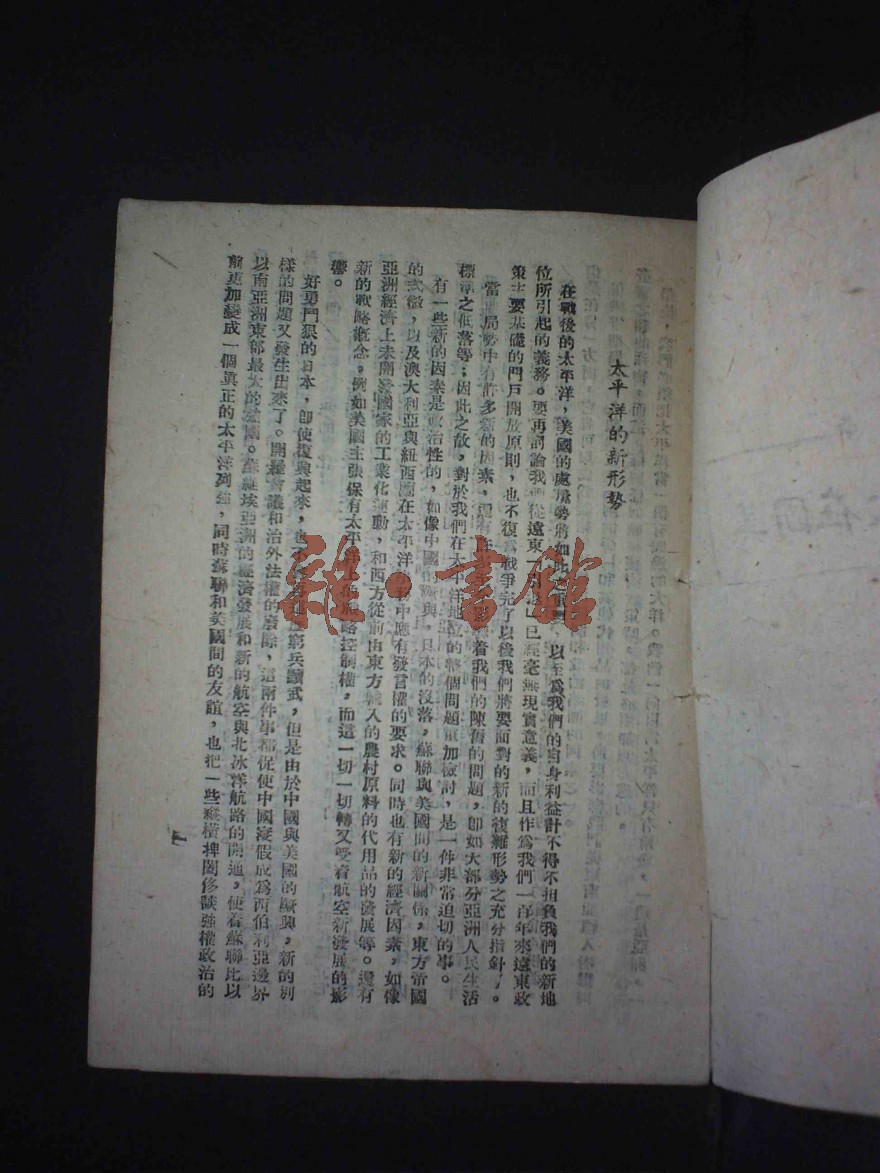 太平洋的新形勢
在戰後的太平洋，美國的處勢將如此，以至爲我們的自身利益計不得不担負我們的新地
位所引起的義務。要再討論我們從遠東「已經毫無現實意義，而且作爲我們一百年來遠東政
策主要基礎的門戶開放原則，也不復爲戰爭完了以後我們將要面對的新的複雜形勢之充分指針。
當局勢中有許多新的因素，還有着我們的陳舊的問題，卽如大部分亞洲人民生活
標準之低落等；因此之故，對於我們在太平洋地位的整個問題重加檢討，是一件非常迫切的事。
有一些新的因素是政治性的，如像中國的興，日本的沒落，蘇聯與美國間的新關係，東方帝國
的式微，以及澳大利亞與紐西蘭在太平洋中應有發言權的要求。同時也有新的經濟因素，如像
亞洲經濟上未開發國家的工業化運動，和西方從前由東方輸入的農村原料的代用品的發展等。還有
新的戰略概念，例如美國主張保有太平洋上的戰略控制權，而這一切一切轉又受着航空新發展的影
響。
好勇鬥狠的日本，卽使復興起來，也不窮兵黷武，但是由於中國與美國的興，新的別
樣的問題又發生出來了。開羅會議和治外法權的廢除，這兩件事都促使中國寖假成爲西伯利亞邊界
以南亞洲東部最大的國。蘇維埃亞洲的經濟發展和新的航空與北冰洋航路的開通，使着蘇聯比以
前更加變成一個眞正的太平洋列強，同時蘇聯和美國間的友誼，也把一些縱橫捭闔侈談強權政治的
雜·書館